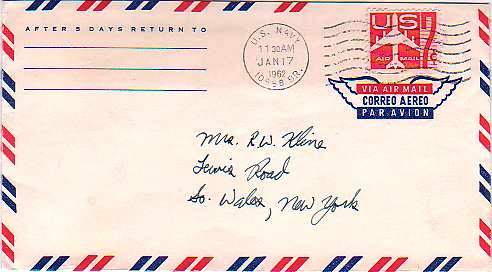 AFTER 5 DAYS RETURN TO
U.S. NAVY
11 30 AM
JAN 17
1962
10558 BR.
US
AIR MAIL
7¢
VIA AIR MAIL
CORREO AEREO
PAR AVION
Mrs. R.W. Kline
Lewis Road
So. Wales, New York